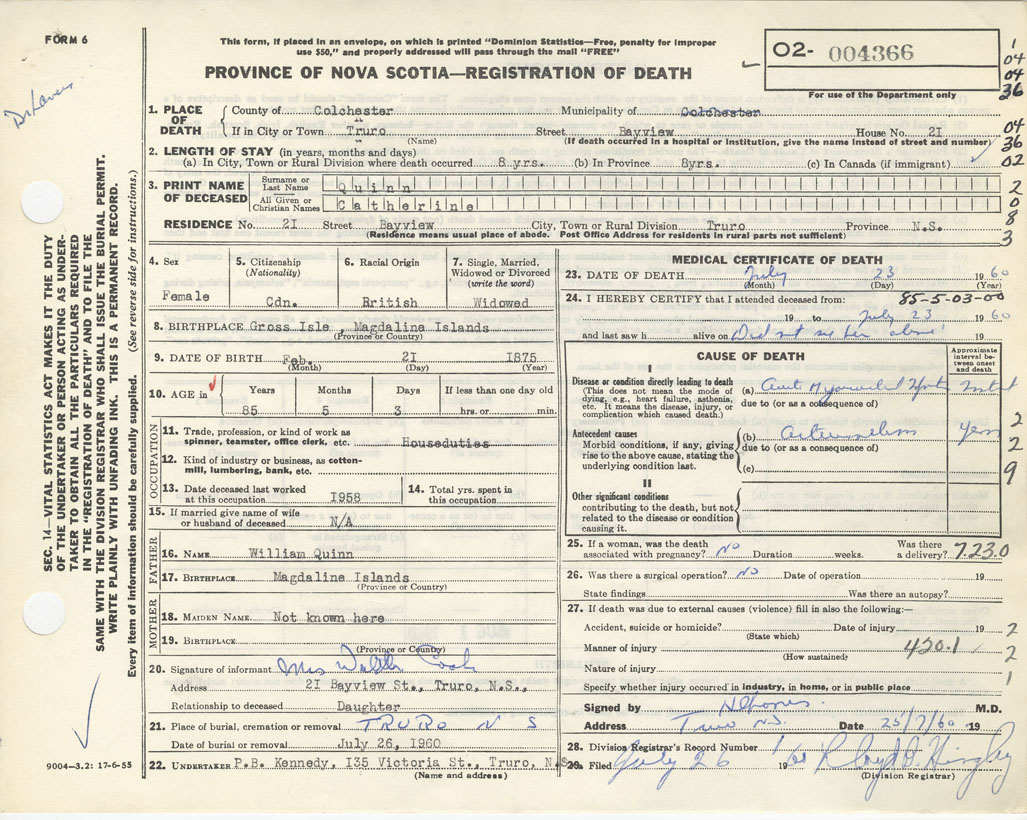 FORM 6
This form, if placed in an envelope, on which is printed "Dominion Statistics—Free, penalty for improper
use $50," and properly addressed will pass through the mail "FREE"
PROVINCE OF NOVA SCOTIA—REGISTRATION OF DEATH
02- 004366
For use of the Department only
1
04
04
36
1. PLACE OF DEATH
County of Colchester Municipality of Colchester
If in City or Town Truro Street Bayview House No. 2I
(Name) (If death occurred in a hospital or institution, give the name instead of street and number)
04
36
02
2. LENGTH OF STAY (in years, months and days)
(a) In City, Town or Rural Division where death occurred 8 yrs. (b) In Province 8yrs. (c) In Canada (if immigrant)
3. PRINT NAME OF DECEASED
Surname or Last Name Quinn
All Given or Christian Names Catherine
RESIDENCE No. 2I Street Bayview City, Town or Rural Division Truro Province N.S.
(Residence means usual place of abode. Post Office Address for residents in rural parts not sufficient)
2
0
8
3
4. Sex
Female
5. Citizenship
(Nationality)
Cdn.
6. Racial Origin
British
7. Single, Married, Widowed or Divorced
(write the word)
Widowed
8. BIRTHPLACE Gross Isle , Magdaline Islands
(Province or Country)
9. DATE OF BIRTH Feb. 2I I875
(Month) (Day) (Year)
10. AGE in
Years Months Days If less than one day old
85 5 3 hrs. or min.
OCCUPATION
11. Trade, profession, or kind of work as
spinner, teamster, office clerk, etc. Houseduties
12. Kind of industry or business, as cotton-
mill, lumbering, bank, etc.
13. Date deceased last worked
at this occupation I958
14. Total yrs. spent in
this occupation
15. If married give name of wife
or husband of deceased N/A
FATHER
16. NAME William Quinn
17. BIRTHPLACE Magdaline Islands
(Province or Country)
MOTHER
18. MAIDEN NAME Not known here
19. BIRTHPLACE
(Province or Country)
20. Signature of informant Mrs Walter Cook
Address 2I Bayview St., Truro, N.S.,
Relationship to deceased Daughter
21. Place of burial, cremation or removal TRURO N S
Date of burial or removal July 26, I960
22. UNDERTAKER P.B. Kennedy, I35 Victoria St., Truro, N.S.
(Name and address)
MEDICAL CERTIFICATE OF DEATH
23. DATE OF DEATH July 23 1960
(Month) (Day) (Year)
24. I HEREBY CERTIFY that I attended deceased from: 85-5-03-00
19 to July 23 1960
and last saw h alive on Did not see her alive 19
CAUSE OF DEATH
Approximate interval between onset and death
I
Disease or condition directly leading to death
(This does not mean the mode of
dying, e.g., heart failure, asthenia,
etc. It means the disease, injury, or
complication which caused death.)
(a)
due to (or as a consequence of)
Antecedent causes
Morbid conditions, if any, giving
rise to the above cause, stating the
underlying condition last.
(b)
due to (or as a consequence of)
(c)
2
2
9
II
Other significant conditions
contributing to the death, but not
related to the disease or condition
causing it.
25. If a woman, was the death
associated with pregnancy? No Duration weeks. Was there a delivery? 7230
26. Was there a surgical operation? No Date of operation 19
State findings Was there an autopsy?
27. If death was due to external causes (violence) fill in also the following:—
Accident, suicide or homicide? Date of injury 19
(State which)
Manner of injury 420.1
(How sustained)
Nature of injury
Specify whether injury occurred in industry, in home, or in public place
2
2
1
Signed by M.D.
Address Truro NS. Date 25/7/60 19
28. Division Registrar's Record Number
29. Filed July 26 1960
(Division Registrar)
SEC. 14—VITAL STATISTICS ACT MAKES IT THE DUTY
OF THE UNDERTAKER OR PERSON ACTING AS UNDER-
TAKER TO OBTAIN ALL THE PARTICULARS REQUIRED
IN THE "REGISTRATION OF DEATH" AND TO FILE THE
SAME WITH THE DIVISION REGISTRAR WHO SHALL ISSUE THE BURIAL PERMIT.
WRITE PLAINLY WITH UNFADING INK. THIS IS A PERMANENT RECORD.
Every item of information should be carefully supplied. (See reverse side for instructions.)
9004—3.2: 17-6-55